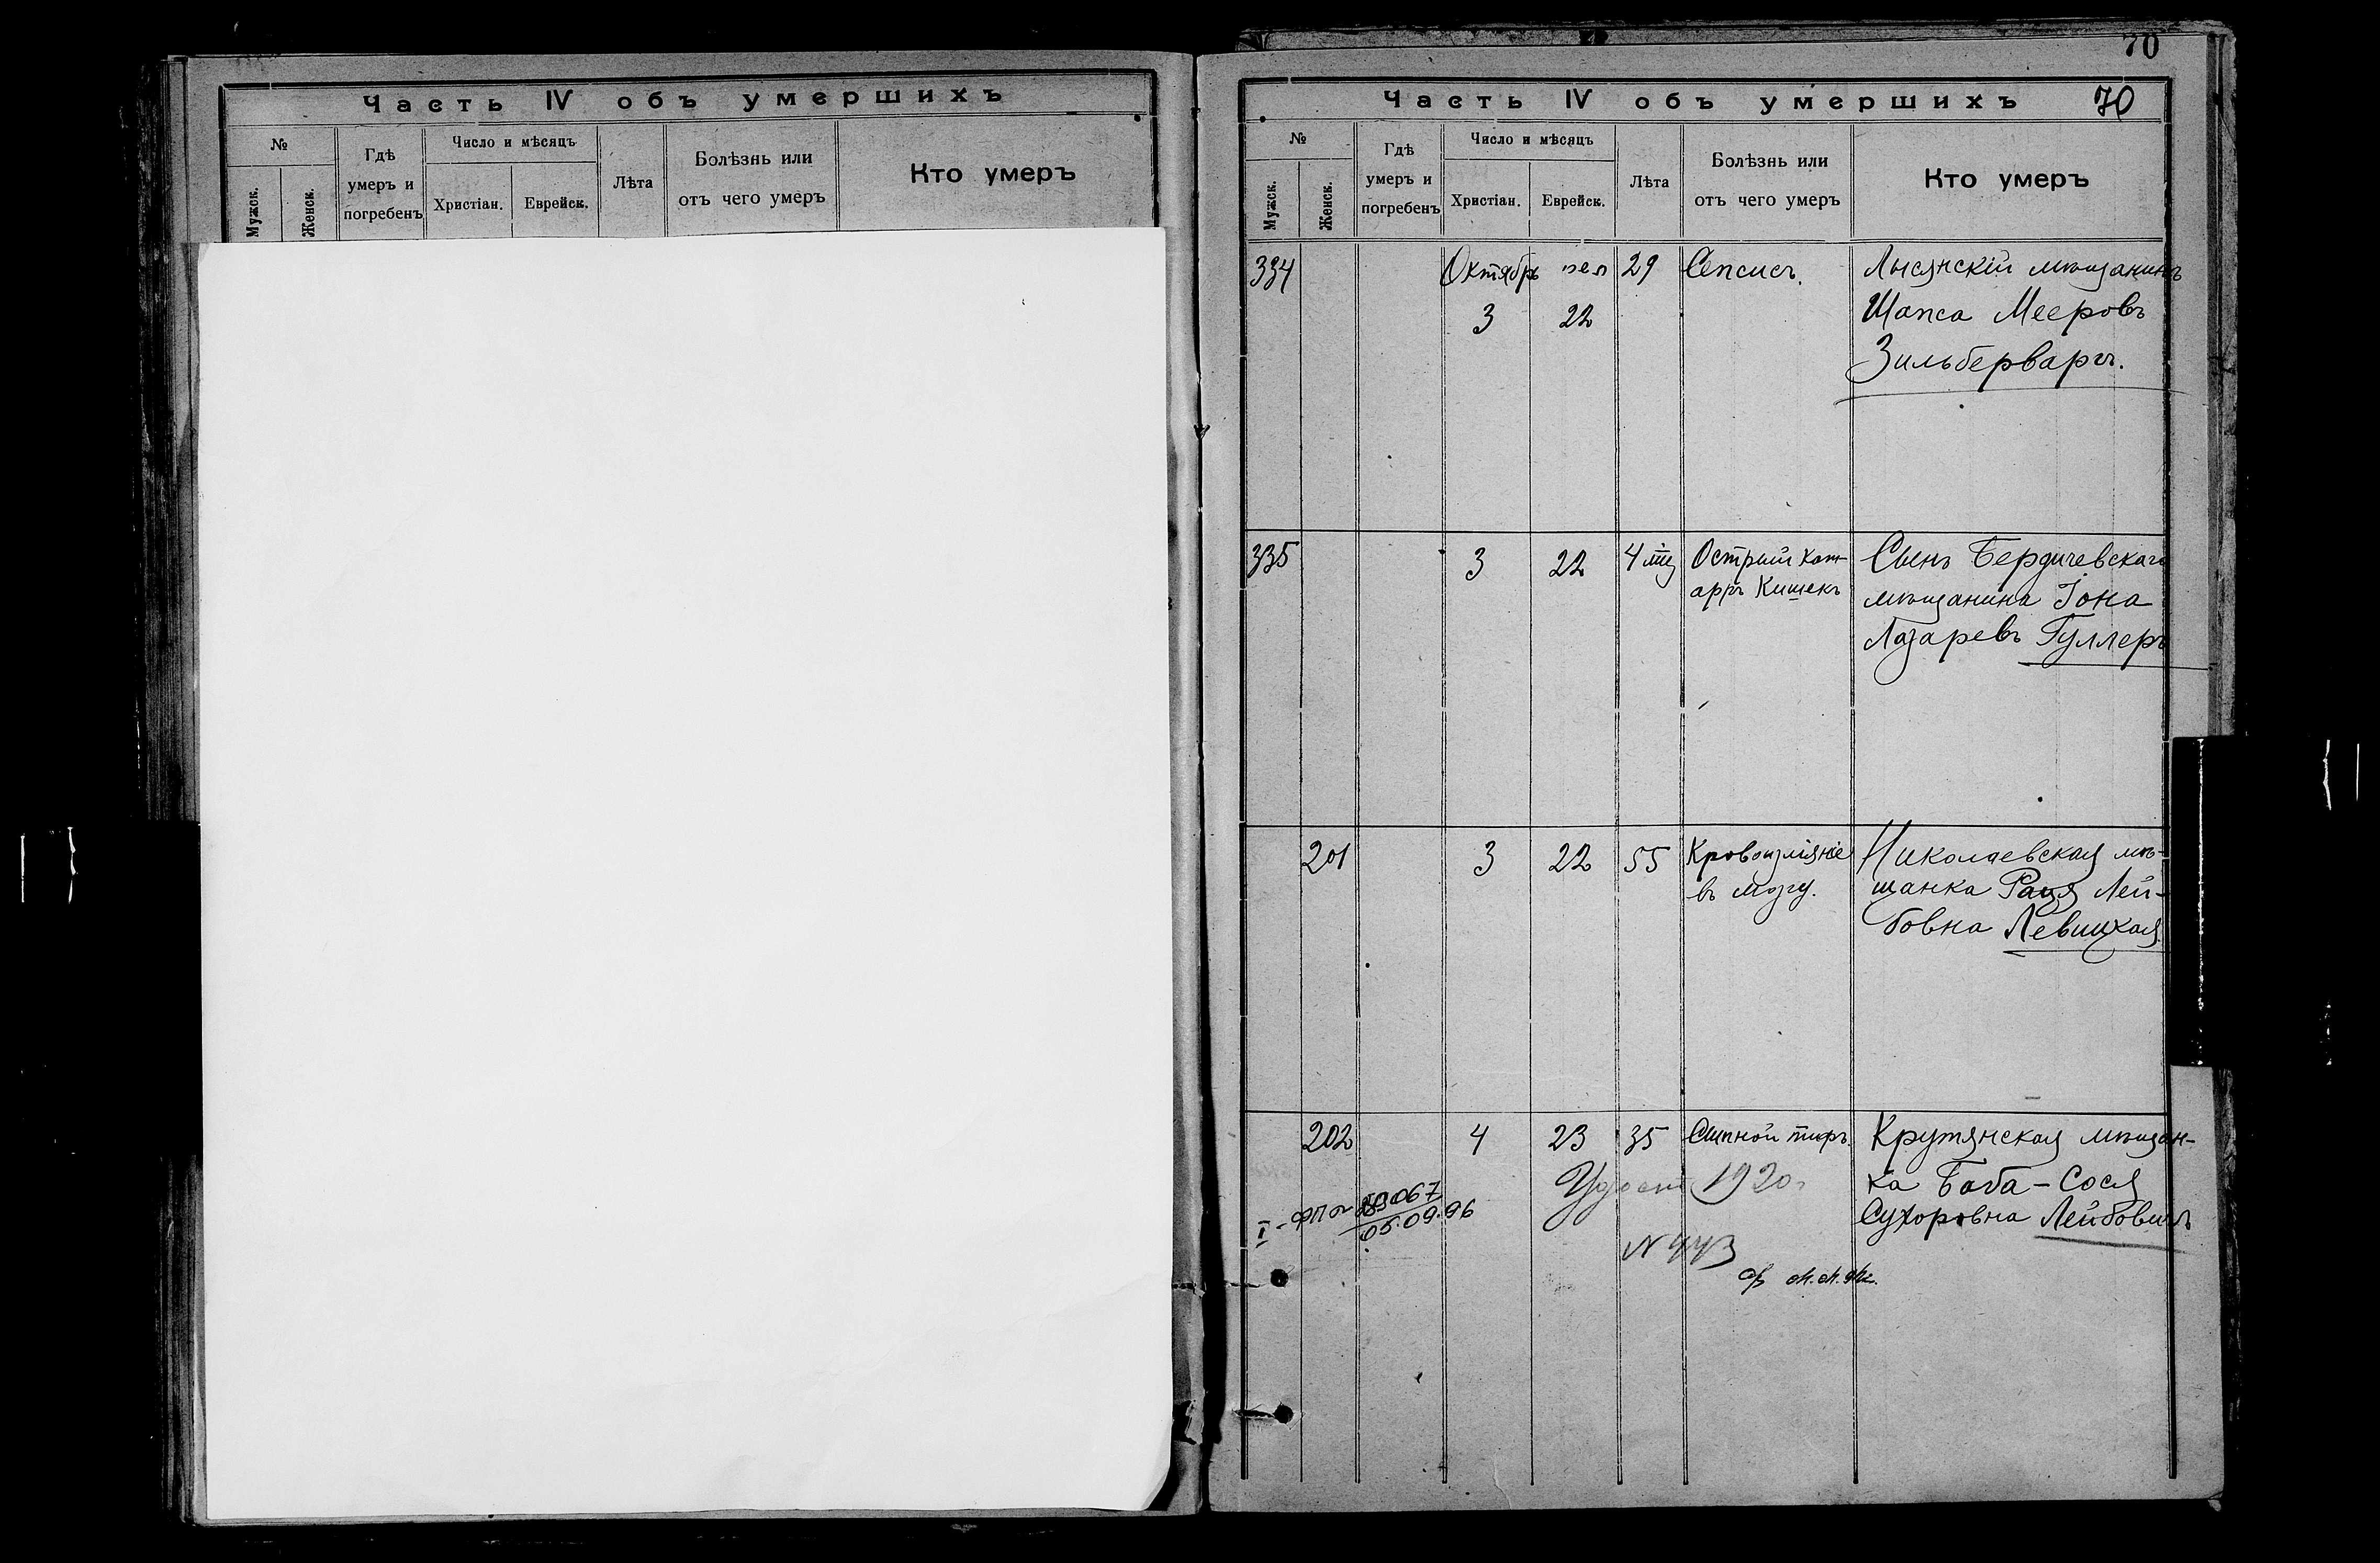 Часть IV объ умершихъ
№
Мужск.
Женск.
Гдѣ
умеръ и
погребенъ
Число и мѣсяцъ
Христіан.
Еврейск.
Лѣта
Болѣзнь или
отъ чего умеръ
Кто умеръ
70
Часть IV объ умершихъ 70
№
Мужск.
Женск.
Гдѣ
умеръ и
погребенъ
Число и мѣсяцъ
Христіан.
Еврейск.
Лѣта
Болѣзнь или
отъ чего умеръ
Кто умеръ
334 Октябрь 29 Сепсисъ. Лысянскій мѣщанинъ
3 22 Шапса Мееровъ
Зильберваргъ.
335 3 22 4 Острый кат-
арръ Кишекъ
Сынъ Бердичевскаго
мѣщанина Іона
Лазаревъ Гуллеръ
201 3 22 55 Кровоизліяніе
въ мозгу.
Николаевская мѣ-
щанка Рация Лей-
бовна Левицкая
202 4 23 35 Сыпной тифъ. Крутянская мѣщан-
ка Баба-Сося
Сухоровна Лейбовичъ
1920
05.09.96
N 443